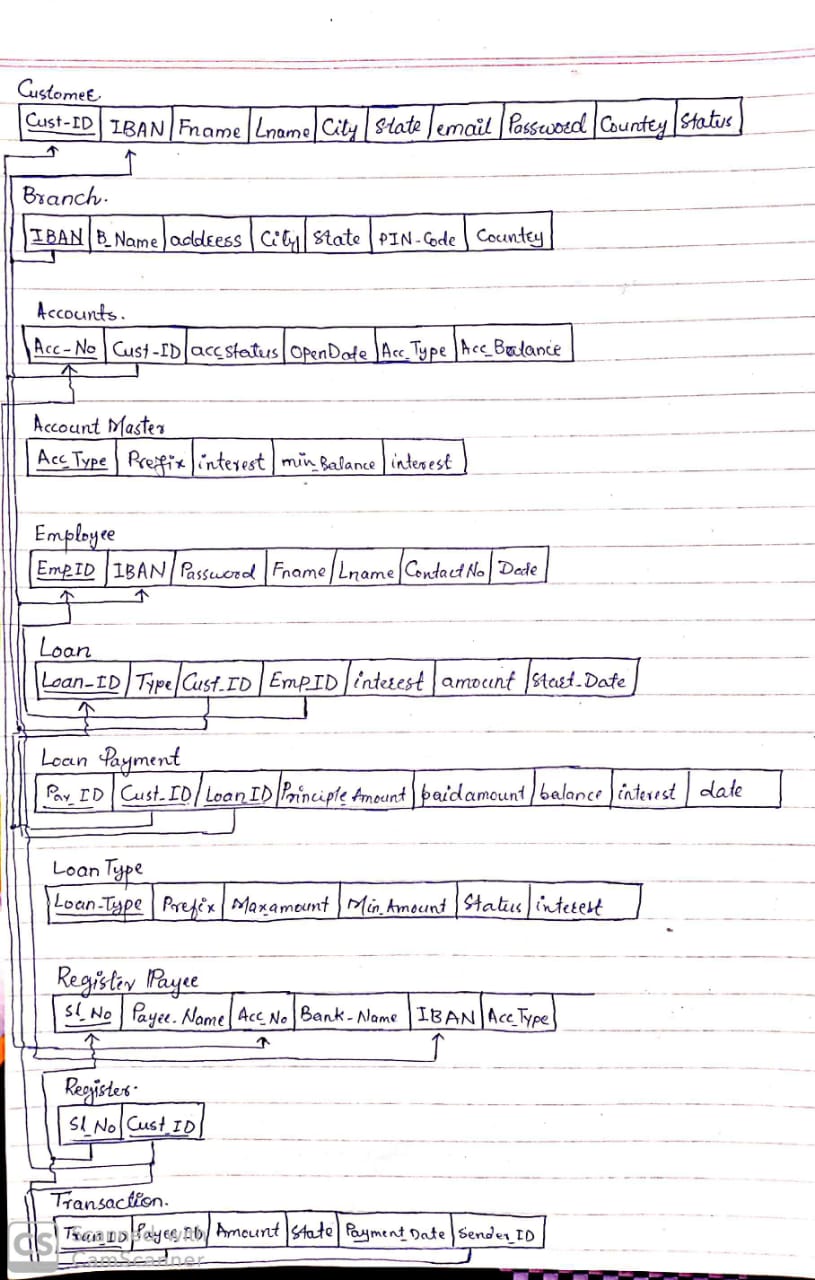 Customer
Cust-ID IBAN Fname Lname City State email Password Country Status
Branch.
IBAN B_Name address City State PIN-Code Country
Accounts.
Acc-No Cust-ID acc_status OpenDate Acc_Type Acc_Balance
Account Master
Acc_Type Prefix interest min_Balance interest
Employee
Emp_ID IBAN Password Fname Lname Contact No Date
Loan
Loan-ID Type Cust_ID Emp_ID interest amount Start-Date
Loan Payment
Pay_ID Cust_ID Loan_ID Principle Amount paid amount balance interest date
Loan Type
Loan-Type Prefix Max amount Min_Amount Status interest
Register Payee
Sl_No Payee-Name Acc_No Bank-Name IBAN Acc_Type
Register.
Sl_No Cust_ID
Transaction.
Tran_ID Payee_ID Amount State Payment Date Sender_ID
CS Scanned with
CamScanner